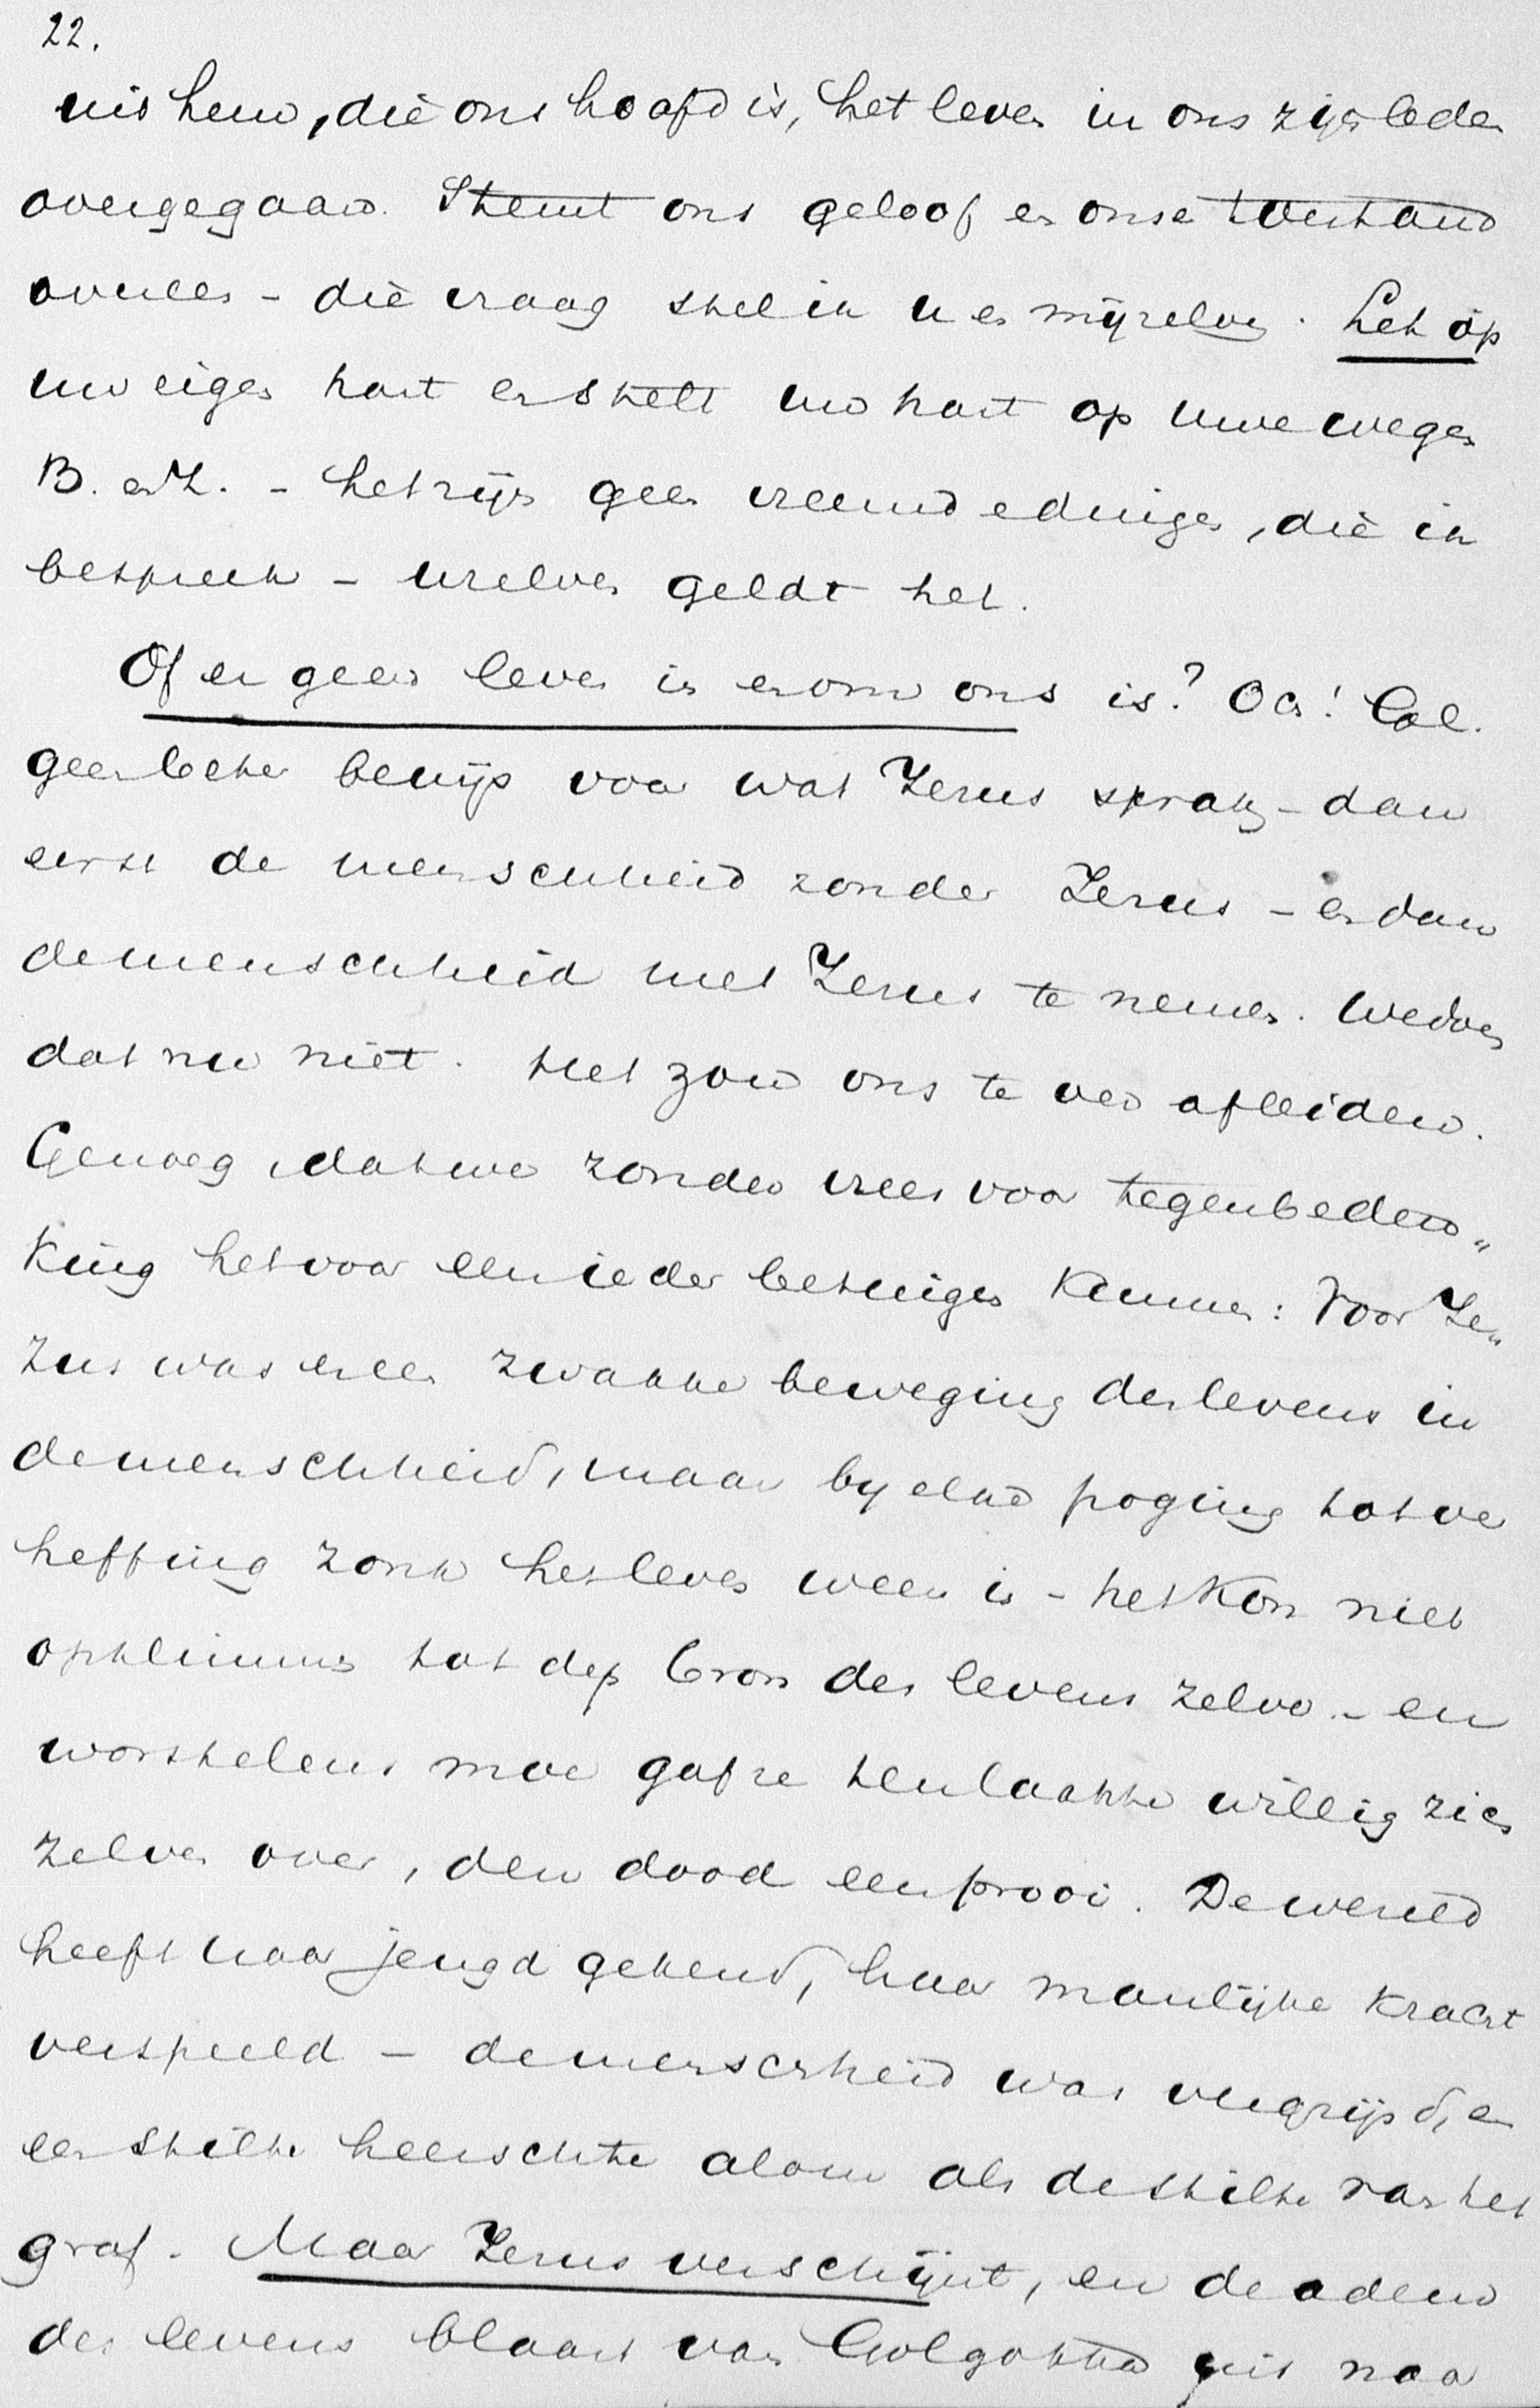 22.
uit hem, die ons hoofd is, het leven in ons zijn leden
overgegaan. Stemt ons geloof en onse toestand
overeen - die vraag stel ik u en mijzelven. Let op
uw eigen hart en stelt uw hart op uwe wegen
B. en Z. - het zijn geen vreemde dingen, die ik
bespreek - uzelven geldt het.
Of er geen leven in en om ons is? Och!
geen beter bewijs voor wat Jezus sprak - dan
eerst de menschheid zonder Jezus - en dan
de menschheid met Jezus te nemen. We doen
dat nu niet. Het zou ons te ver afleiden.
Genoeg, dat we zonder vrees voor tegenbeden„
king het voor een ieder betuigen kunnen: Voor Je„
zus was er een zwakke beweging des levens in
de menschheid, maar by elke poging tot ver
heffing zonk het leven weer in - het kon niet
opklimmen tot des bron des levens zelve. - en
worstelens moe gaf ze ten laatste willig zich
zelven over, den dood een prooi. De wereld
heeft haar jeugd gekend, haar manlijke kracht
verspeeld - de menschheid was vergrijsd, en
een stilte heerschte alom als de stilte van het
graf. Maar Jezus verschijnt, en de adem
des levens blaast van Golgotha uit naar